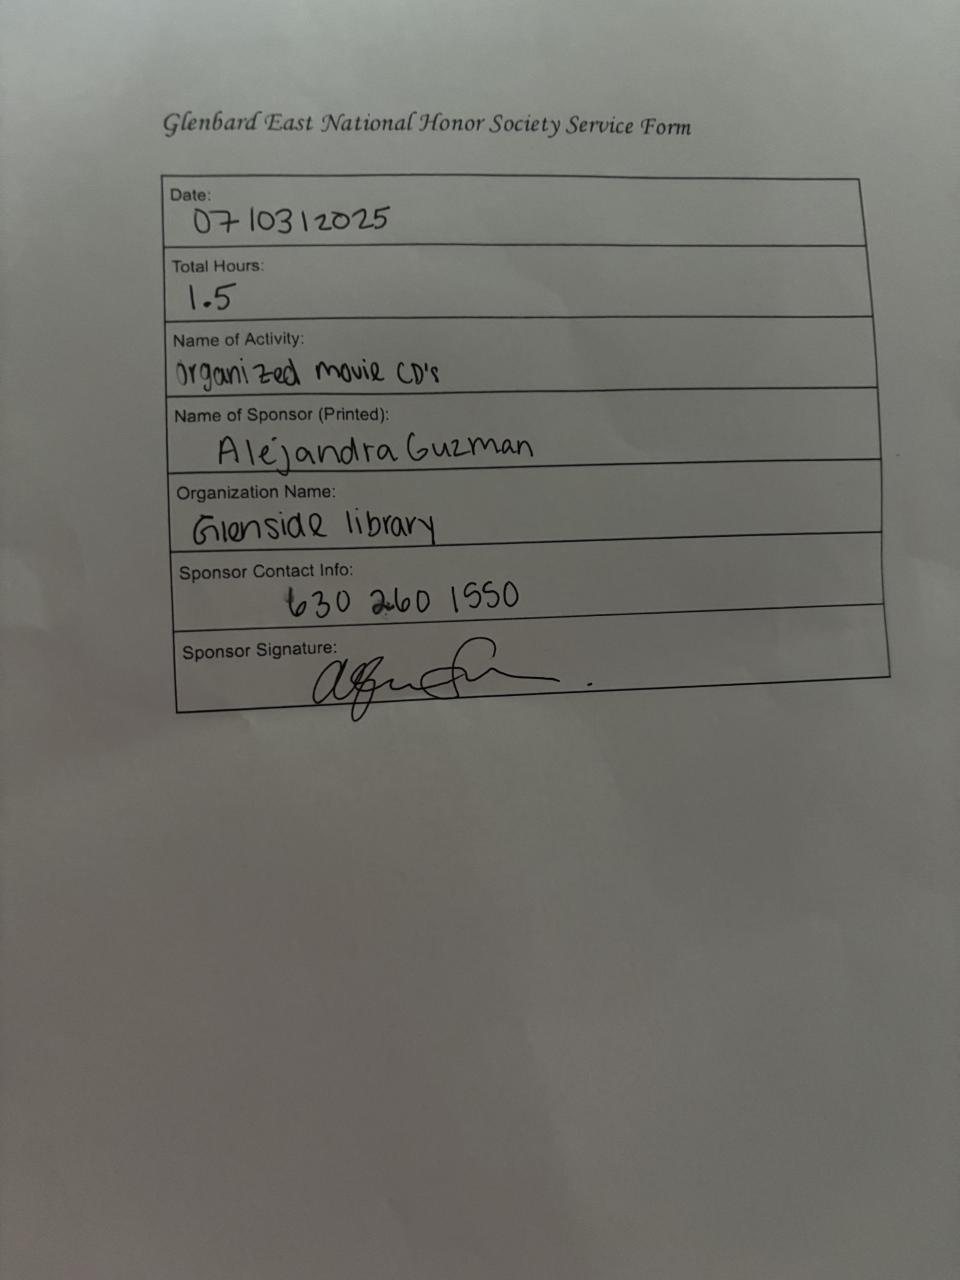 Glenbard East National Honor Society Service Form
Date:
07/03/2025
Total Hours:
1.5
Name of Activity:
Organized movie CD's
Name of Sponsor (Printed):
Alejandra Guzman
Organization Name:
Glenside library
Sponsor Contact Info:
630 260 1550
Sponsor Signature: